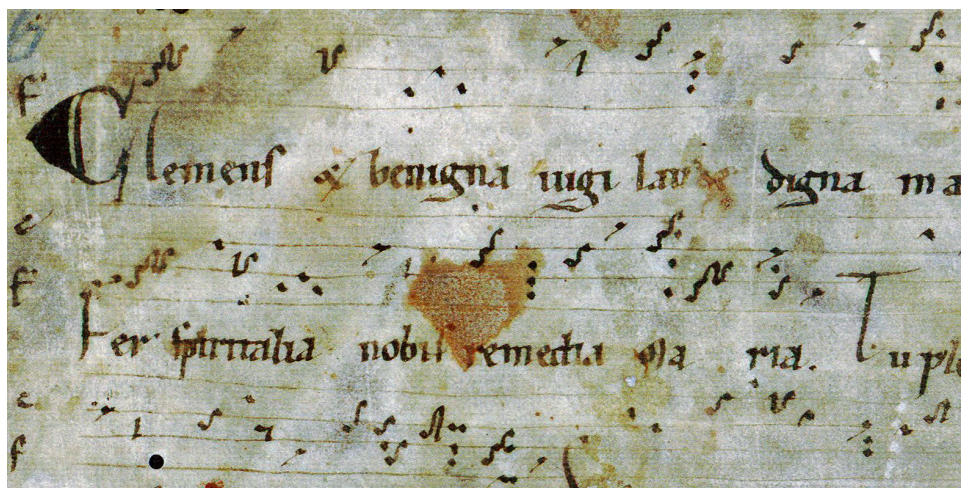 Clemens & benigna iugi laude digna ma
Fer spiritalia nobis remedia Maria. Tu ple